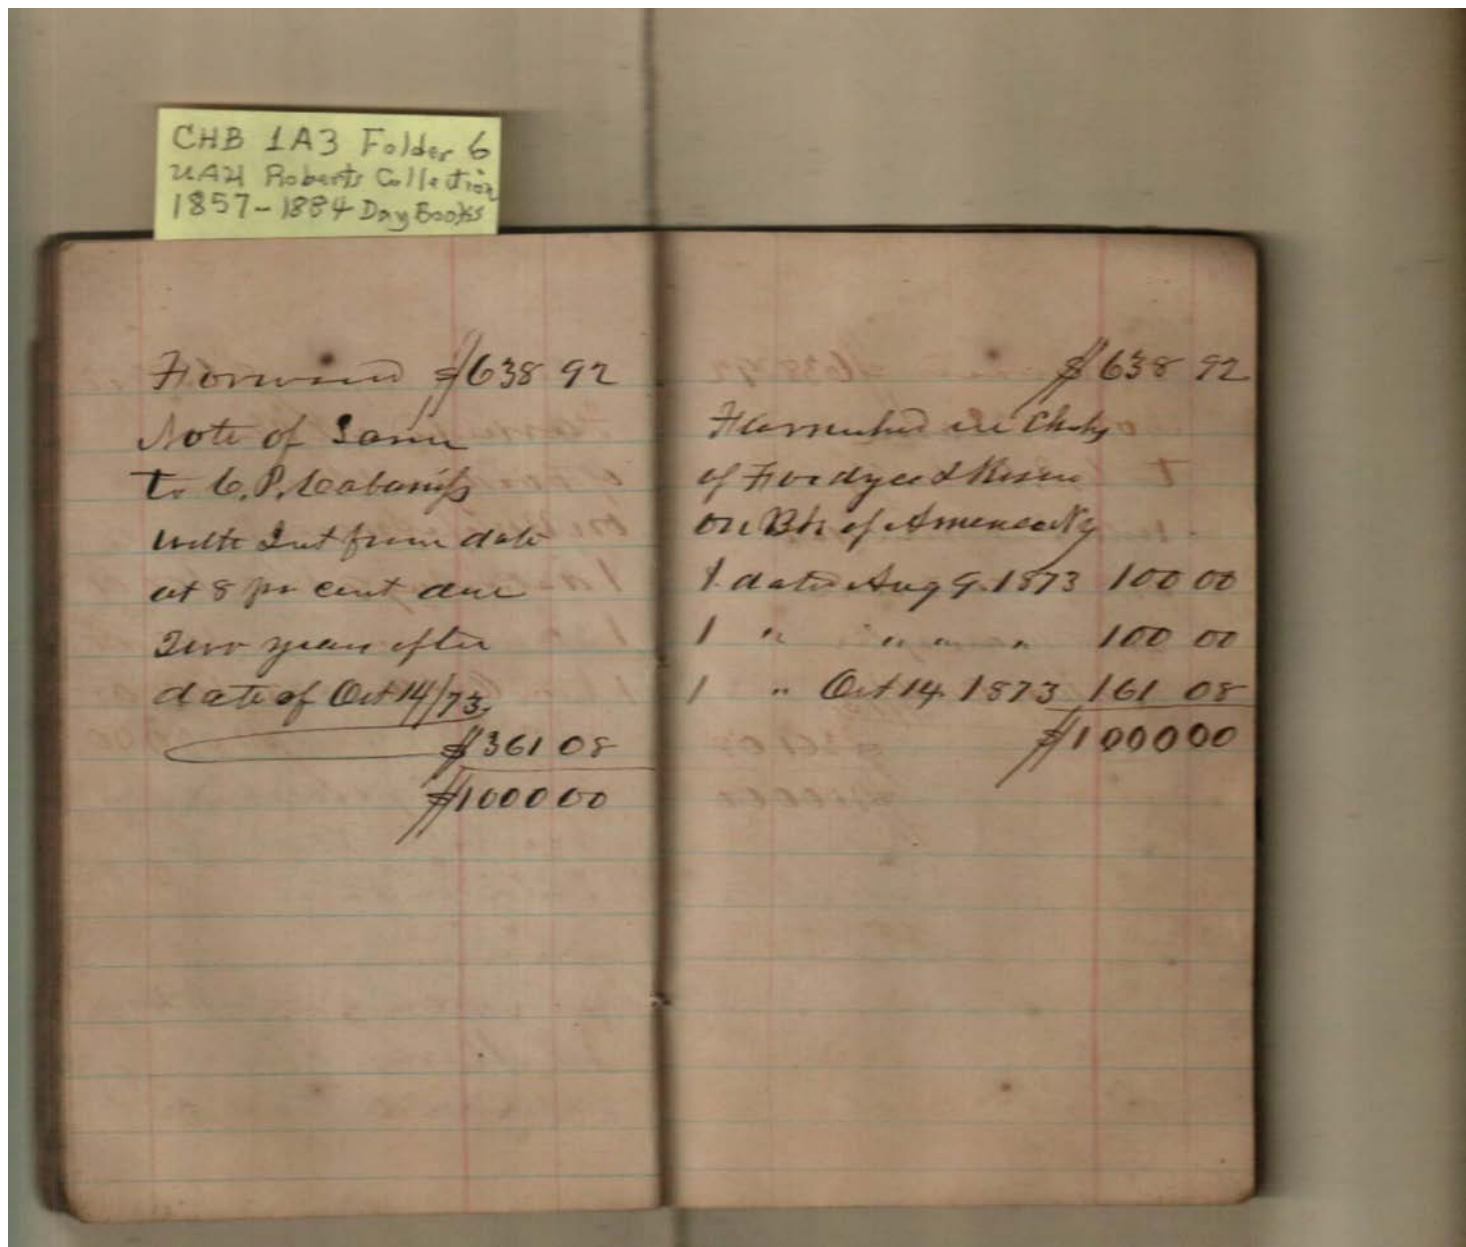 CHB 1A3 Folder 6
UAH Roberts Collection
1857-1884 Day Books
Forward $638 92
Note of Same
to C. P. Cabaniss
with Int from date
at 8 pr cent due
Two years after
date of Oct 14/73.
$361 08
$1000 00
$638 92
in Chks
of &
on Bk of America NY
1 date Aug 9. 1873 100 00
1 " " " " 100 00
1 " Oct 14. 1873 161 08
$1000 00